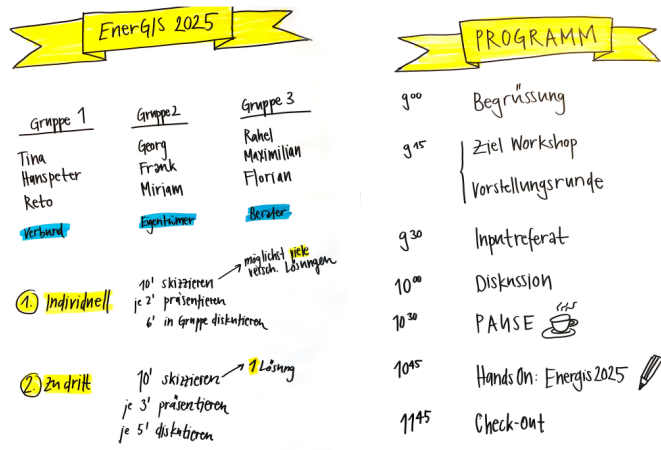 EnerGIS 2025
Gruppe 1
Tina
Hanspeter
Reto
Verbund
Gruppe 2
Georg
Frank
Miriam
Eigentümer
Gruppe 3
Rahel
Maximilian
Florian
Berater
1. Individuell
10' skizzieren
möglichst viele
versch. Lösungen
je 2' präsentieren
6' in Gruppe diskutieren
2. Zu dritt
10' skizzieren
1 Lösung
je 3' präsentieren
je 5' diskutieren
PROGRAMM
9⁰⁰ Begrüssung
9¹⁵ Ziel Workshop
Vorstellungsrunde
9³⁰ Inputreferat
10⁰⁰ Diskussion
10³⁰ PAUSE
10⁴⁵ Hands On: Energis2025
11⁴⁵ Check-out